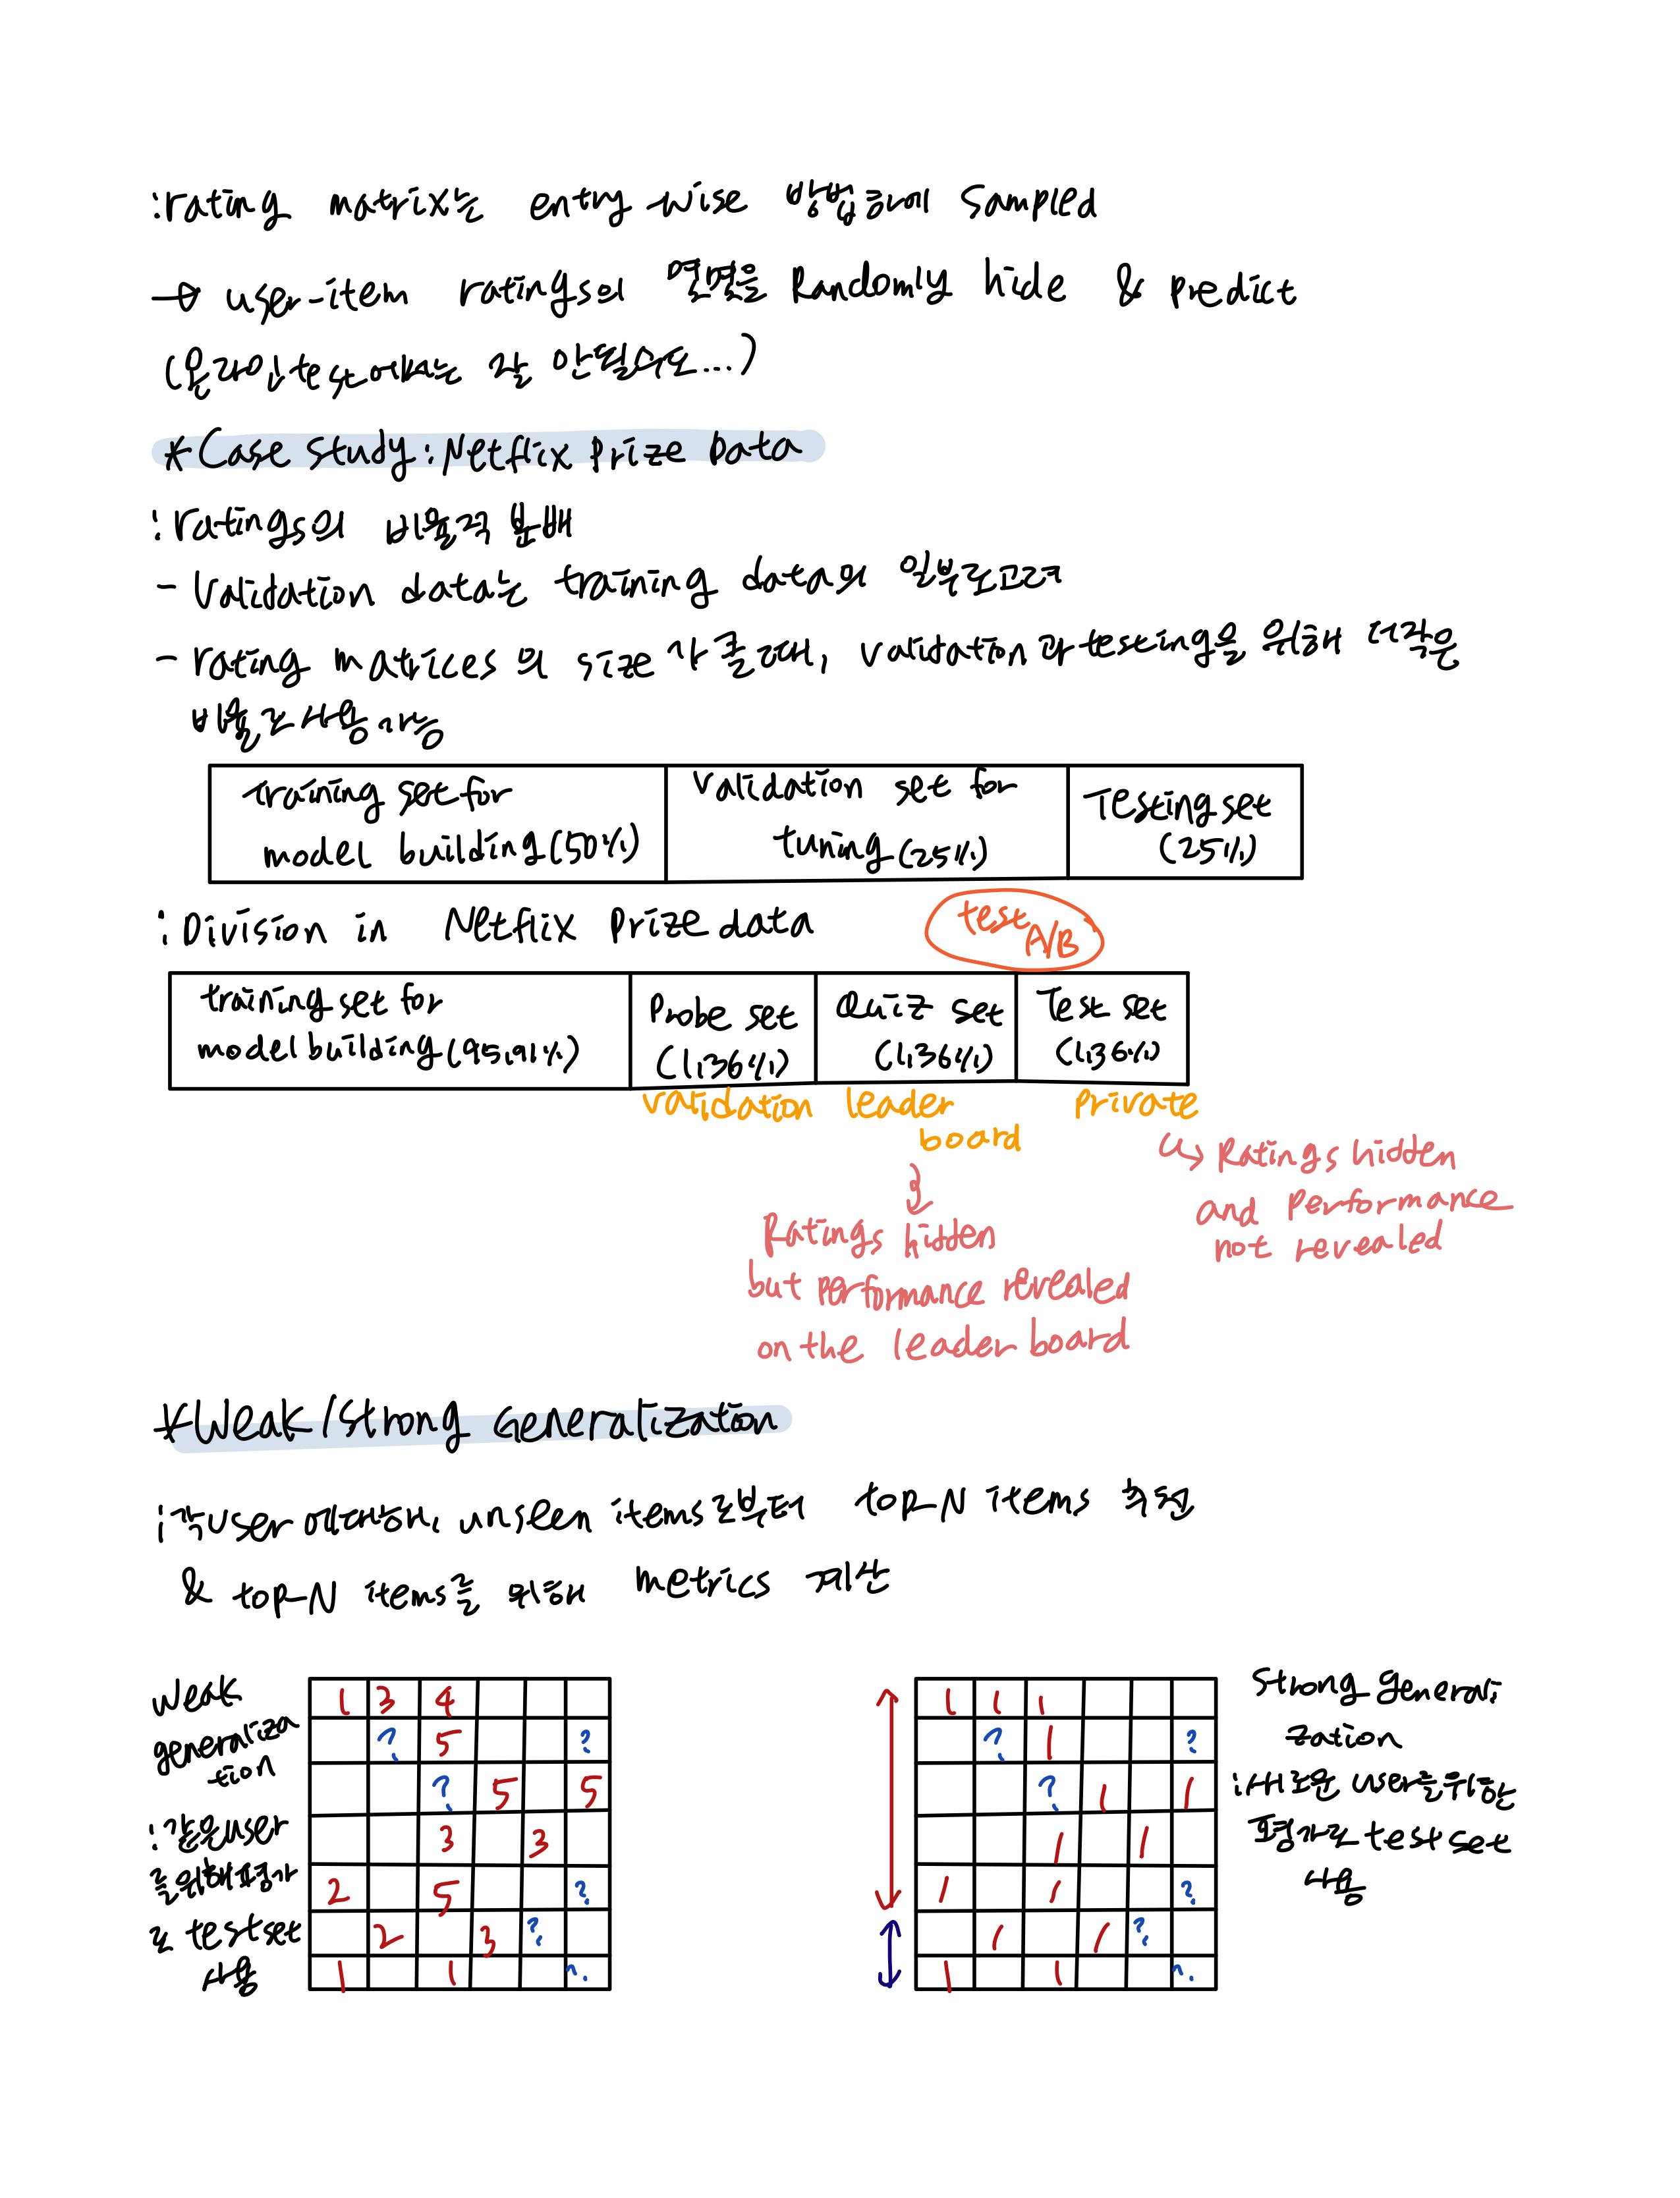 :rating matrix는 entry-wise 방법 통해 sampled
→ user-item ratings의 몇몇을 Randomly hide & predict
(온라인 test에서는 잘 안될수도....)
*Case study: Netflix Prize Data
:ratings의 비율적 분배
- Validation data는 training data의 일부로 고려
- rating matrices의 size가 클 때, validation과 testing을 위해 더작은
비율로 사용 가능
training set for
model building (50%)
validation set for
tuning (25%)
Testing set
(25%)
: Division in Netflix Prize data
test A/B
training set for
model building (95.91%)
Probe set
(1.36%)
Quiz set
(1.36%)
Test set
(1.36%)
validation
leader
board
private
↪ Ratings hidden
and performance
not revealed
Ratings hidden
but performance revealed
on the leader board
*Weak/Strong Generalization
:각 user에 대해, unseen items로부터 top-N items 추천
& top-N items를 위해 metrics 계산
weak
generaliza
tion
:같은 user
를 위해 평가
로 test set
사용
1 3 4
? 5 ?
? 5 5
3 3
2 5 ?
2 3 ?
1 1 ?
1 1 1
? 1 ?
? 1 1
1 1
1 1 ?
1 1 ?
1 1 ?
Strong generali
zation
:새로운 user를 위한
평가로 test set
사용